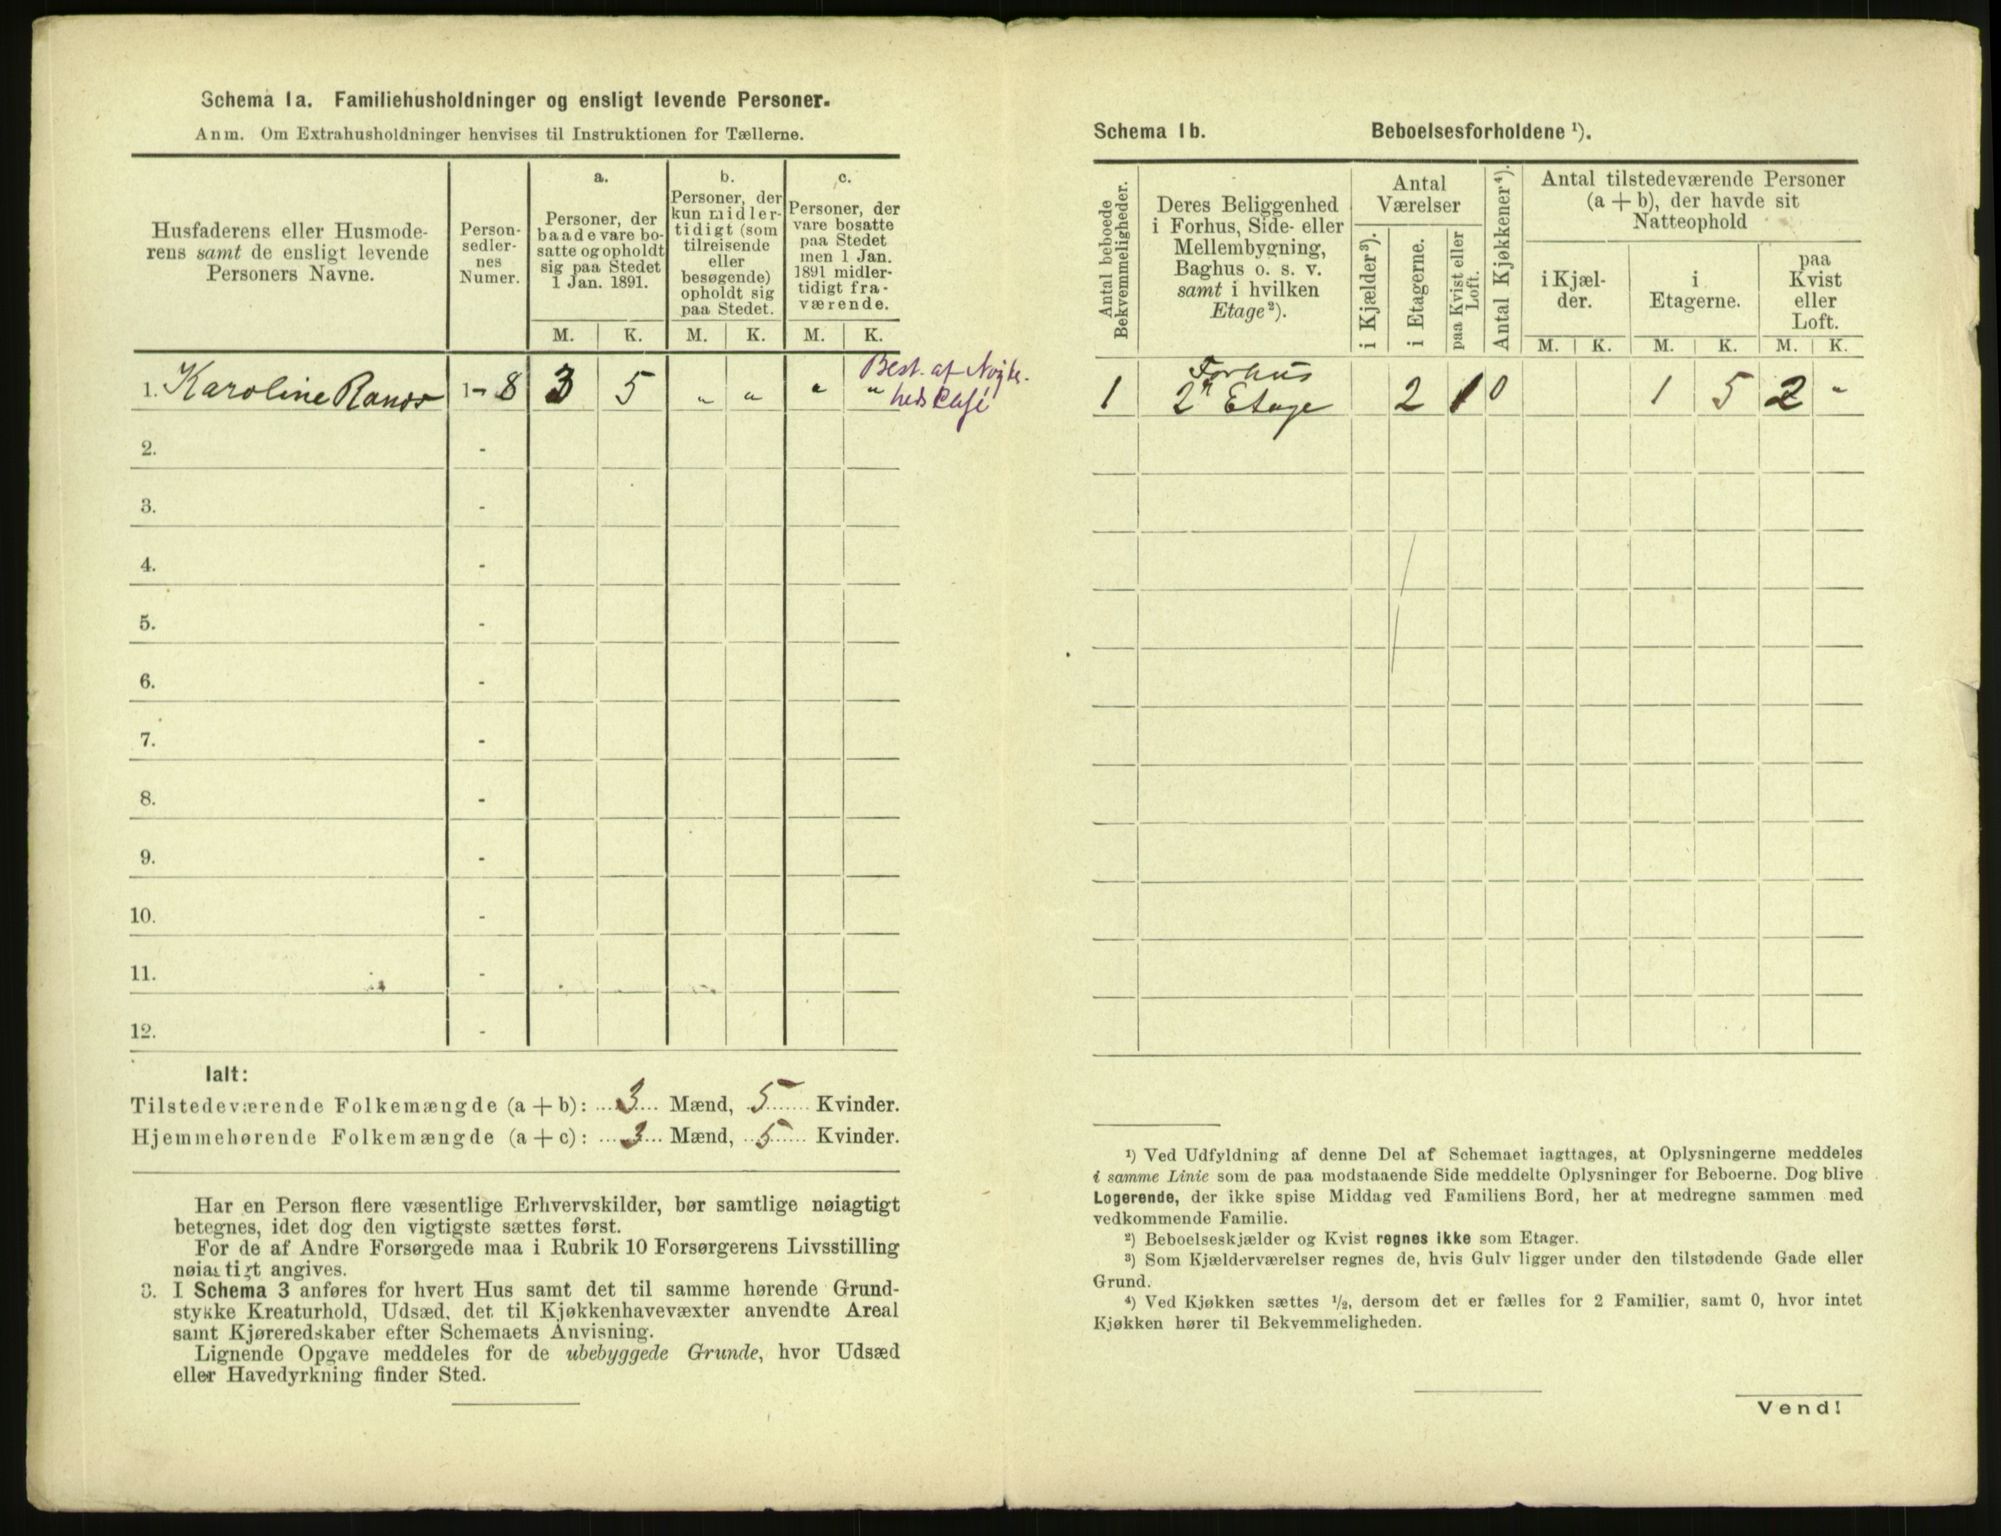 Schema 1a. Familiehusholdninger og ensligt levende Personer.
Anm. Om Extrahusholdninger henvises til Instruktionen for Tællerne.
Husfaderens eller Husmode-
rens samt de ensligt levende
Personers Navne.
Person-
sedler-
nes
Numer.
a.
Personer, der
baade vare bo-
satte og opholdt
sig paa Stedet
1 Jan. 1891.
b.
Personer, der
kun midler-
tidigt (som
tilreisende
eller
besøgende)
opholdt sig
paa Stedet.
c.
Personer, der
vare bosatte
paa Stedet
men 1 Jan.
1891 midler-
tidigt fra-
værende.
M. K. M. K. M. K.
1. Karoline 1-8 3 5 „ „ „ „
Best. af Nøgte-
heds Café
2. -
3. -
4. -
5. -
6. -
7. -
8. -
9. -
10. -
11. -
12. -
Ialt:
Tilstedeværende Folkemængde (a + b): 3 Mænd, 5 Kvinder.
Hjemmehørende Folkemængde (a + c): 3 Mænd, 5 Kvinder.
Har en Person flere væsentlige Erhvervskilder, bør samtlige nøiagtigt
betegnes, idet dog den vigtigste sættes først.
For de af Andre Forsørgede maa i Rubrik 10 Forsørgerens Livsstilling
nøiagtigt angives.
3. I Schema 3 anføres for hvert Hus samt det til samme hørende Grund-
stykke Kreaturhold, Udsæd, det til Kjøkkenhavevæxter anvendte Areal
samt Kjøreredskaber efter Schemaets Anvisning.
Lignende Opgave meddeles for de ubebyggede Grunde, hvor Udsæd
eller Havedyrkning finder Sted.
Schema 1b. Beboelsesforholdene ¹).
Antal beboede
Bekvemmeligheder.
Deres Beliggenhed
i Forhus, Side- eller
Mellembygning,
Baghus o. s. v.
samt i hvilken
Etage²).
Antal
Værelser
i Kjælder³).
i Etagerne.
paa Kvist eller
Loft.
Antal Kjøkkener⁴).
Antal tilstedeværende Personer
(a + b), der havde sit
Natteophold
i Kjæl-
der.
i
Etagerne.
paa
Kvist
eller
Loft.
M. K. M. K. M. K.
1 Forhus 2 1 0 1 5 2 „
2n Etage
¹) Ved Udfyldning af denne Del af Schemaet iagttages, at Oplysningerne meddeles
i samme Linie som de paa modstaaende Side meddelte Oplysninger for Beboerne. Dog blive
Logerende, der ikke spise Middag ved Familiens Bord, her at medregne sammen med
vedkommende Familie.
²) Beboelseskjælder og Kvist regnes ikke som Etager.
³) Som Kjælderværelser regnes de, hvis Gulv ligger under den tilstødende Gade eller
Grund.
⁴) Ved Kjøkken sættes ½, dersom det er fælles for 2 Familier, samt 0, hvor intet
Kjøkken hører til Bekvemmeligheden.
Vend!